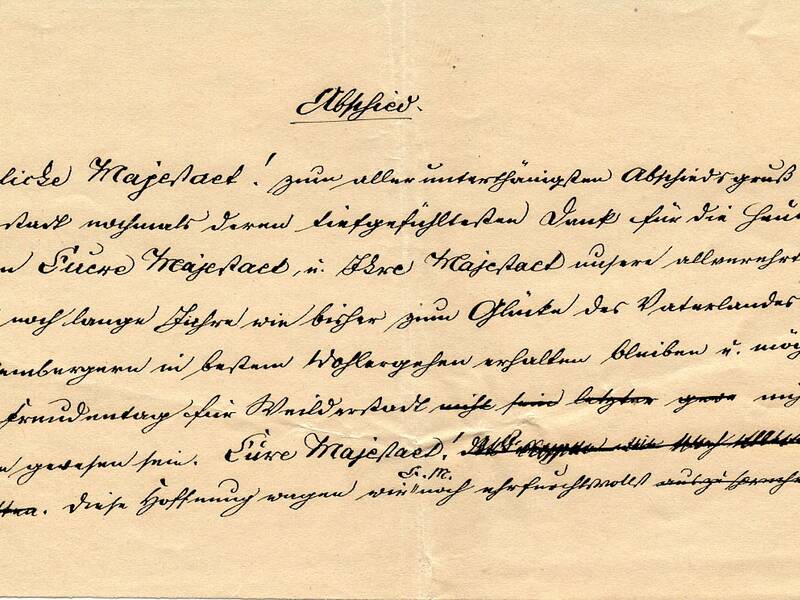 Abschied.
liche Majestaet! zum allerunterthänigsten Abschiedsgruß
stadt nochmals deren tiefgefühltesten Dank für die heu
n Euere Majestaet, u. Ihre Majestaet unsere allverehrt
noch lange Jahre wie bisher zum Glücke des Vaterlandes
embergern in bestem Wohlergehen erhalten bleiben u. mög
Freudentag für Weilderstadt nicht sein letzter gewe
n gewesen sein. Eure Majestaet!
E. M.
diese Hoffnung wagen wir noch ehrfurchtsvollst auszusprechen